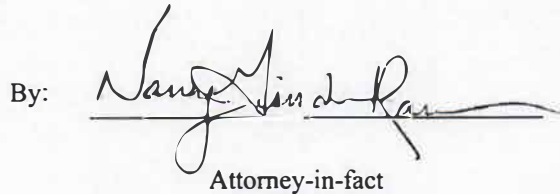 By: Nancy
Attorney-in-fact